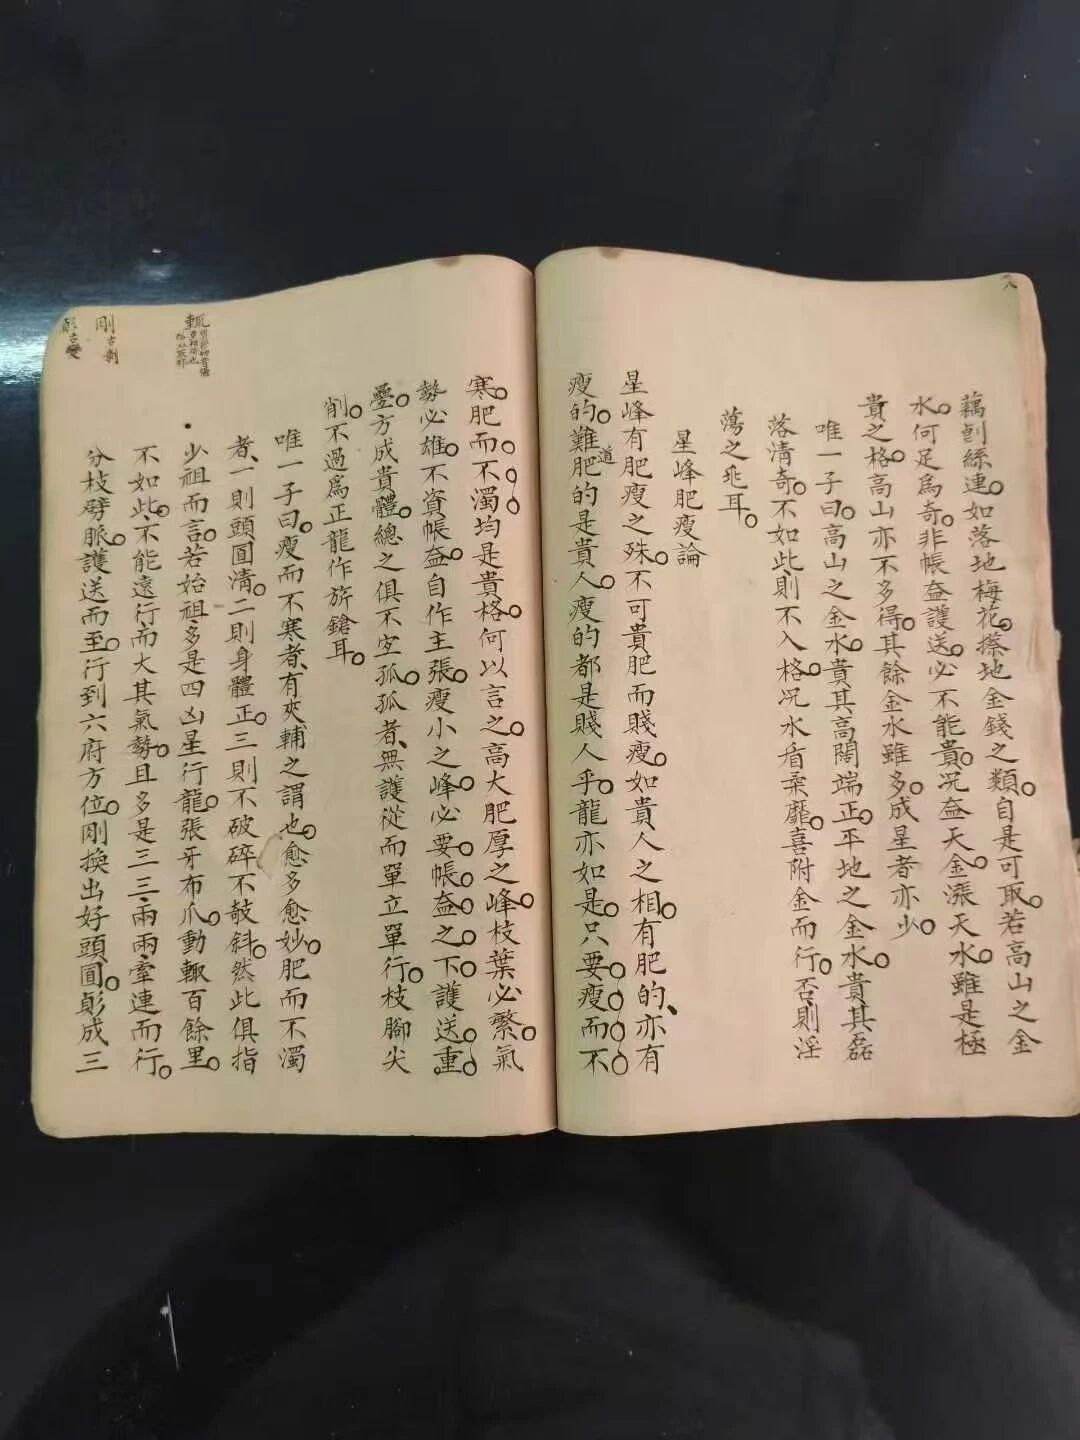 藕刨絲連。如落地梅花。撒地金錢之類。自是可取。若高山之金
水。何足爲奇。非帳葢護送。必不能貴。况葢天金。漲天水。雖是極
貴之格。高山亦不多得。其餘金水雖多。成星者亦少。
唯一子曰。高山之金水。貴其高闊端正。平地之金水。貴其磊
落清奇。不如此則不入格。况水看柔靡。喜附金而行。否則淫
蕩之兆耳。
星峰肥瘦論
星峰有肥瘦之殊。不可貴肥而賤瘦。如貴人之相。有肥的、亦有
瘦的。難道肥的是貴人。瘦的都是賤人乎。龍亦如是。只要瘦而不
寒。肥而不濁。均是貴格。何以言之。高大肥厚之峰。枝葉必繁。氣
勢必雄。不資帳葢。自作主張。瘦小之峰。必要帳葢之下。護送重
疊。方成貴體。總之俱不宜孤。孤者、無護從而單立單行。枝腳尖
削。不過爲正龍作旂鎗耳。
唯一子曰。瘦而不寒者、有夾輔之謂也。愈多愈妙。肥而不濁
者、一則頭圓淸。二則身體正。三則不破碎不敧斜。然此俱指
少祖而言。若始祖多是四凶星行龍。張牙布爪。動輒百餘里。
不如此。不能遠行而大其氣勢。且多是三三兩兩牽連而行。
分枝劈脈。護送而至。行到六府方位。剛換出好頭圓。剪成三
甄
剛 古剝
古變